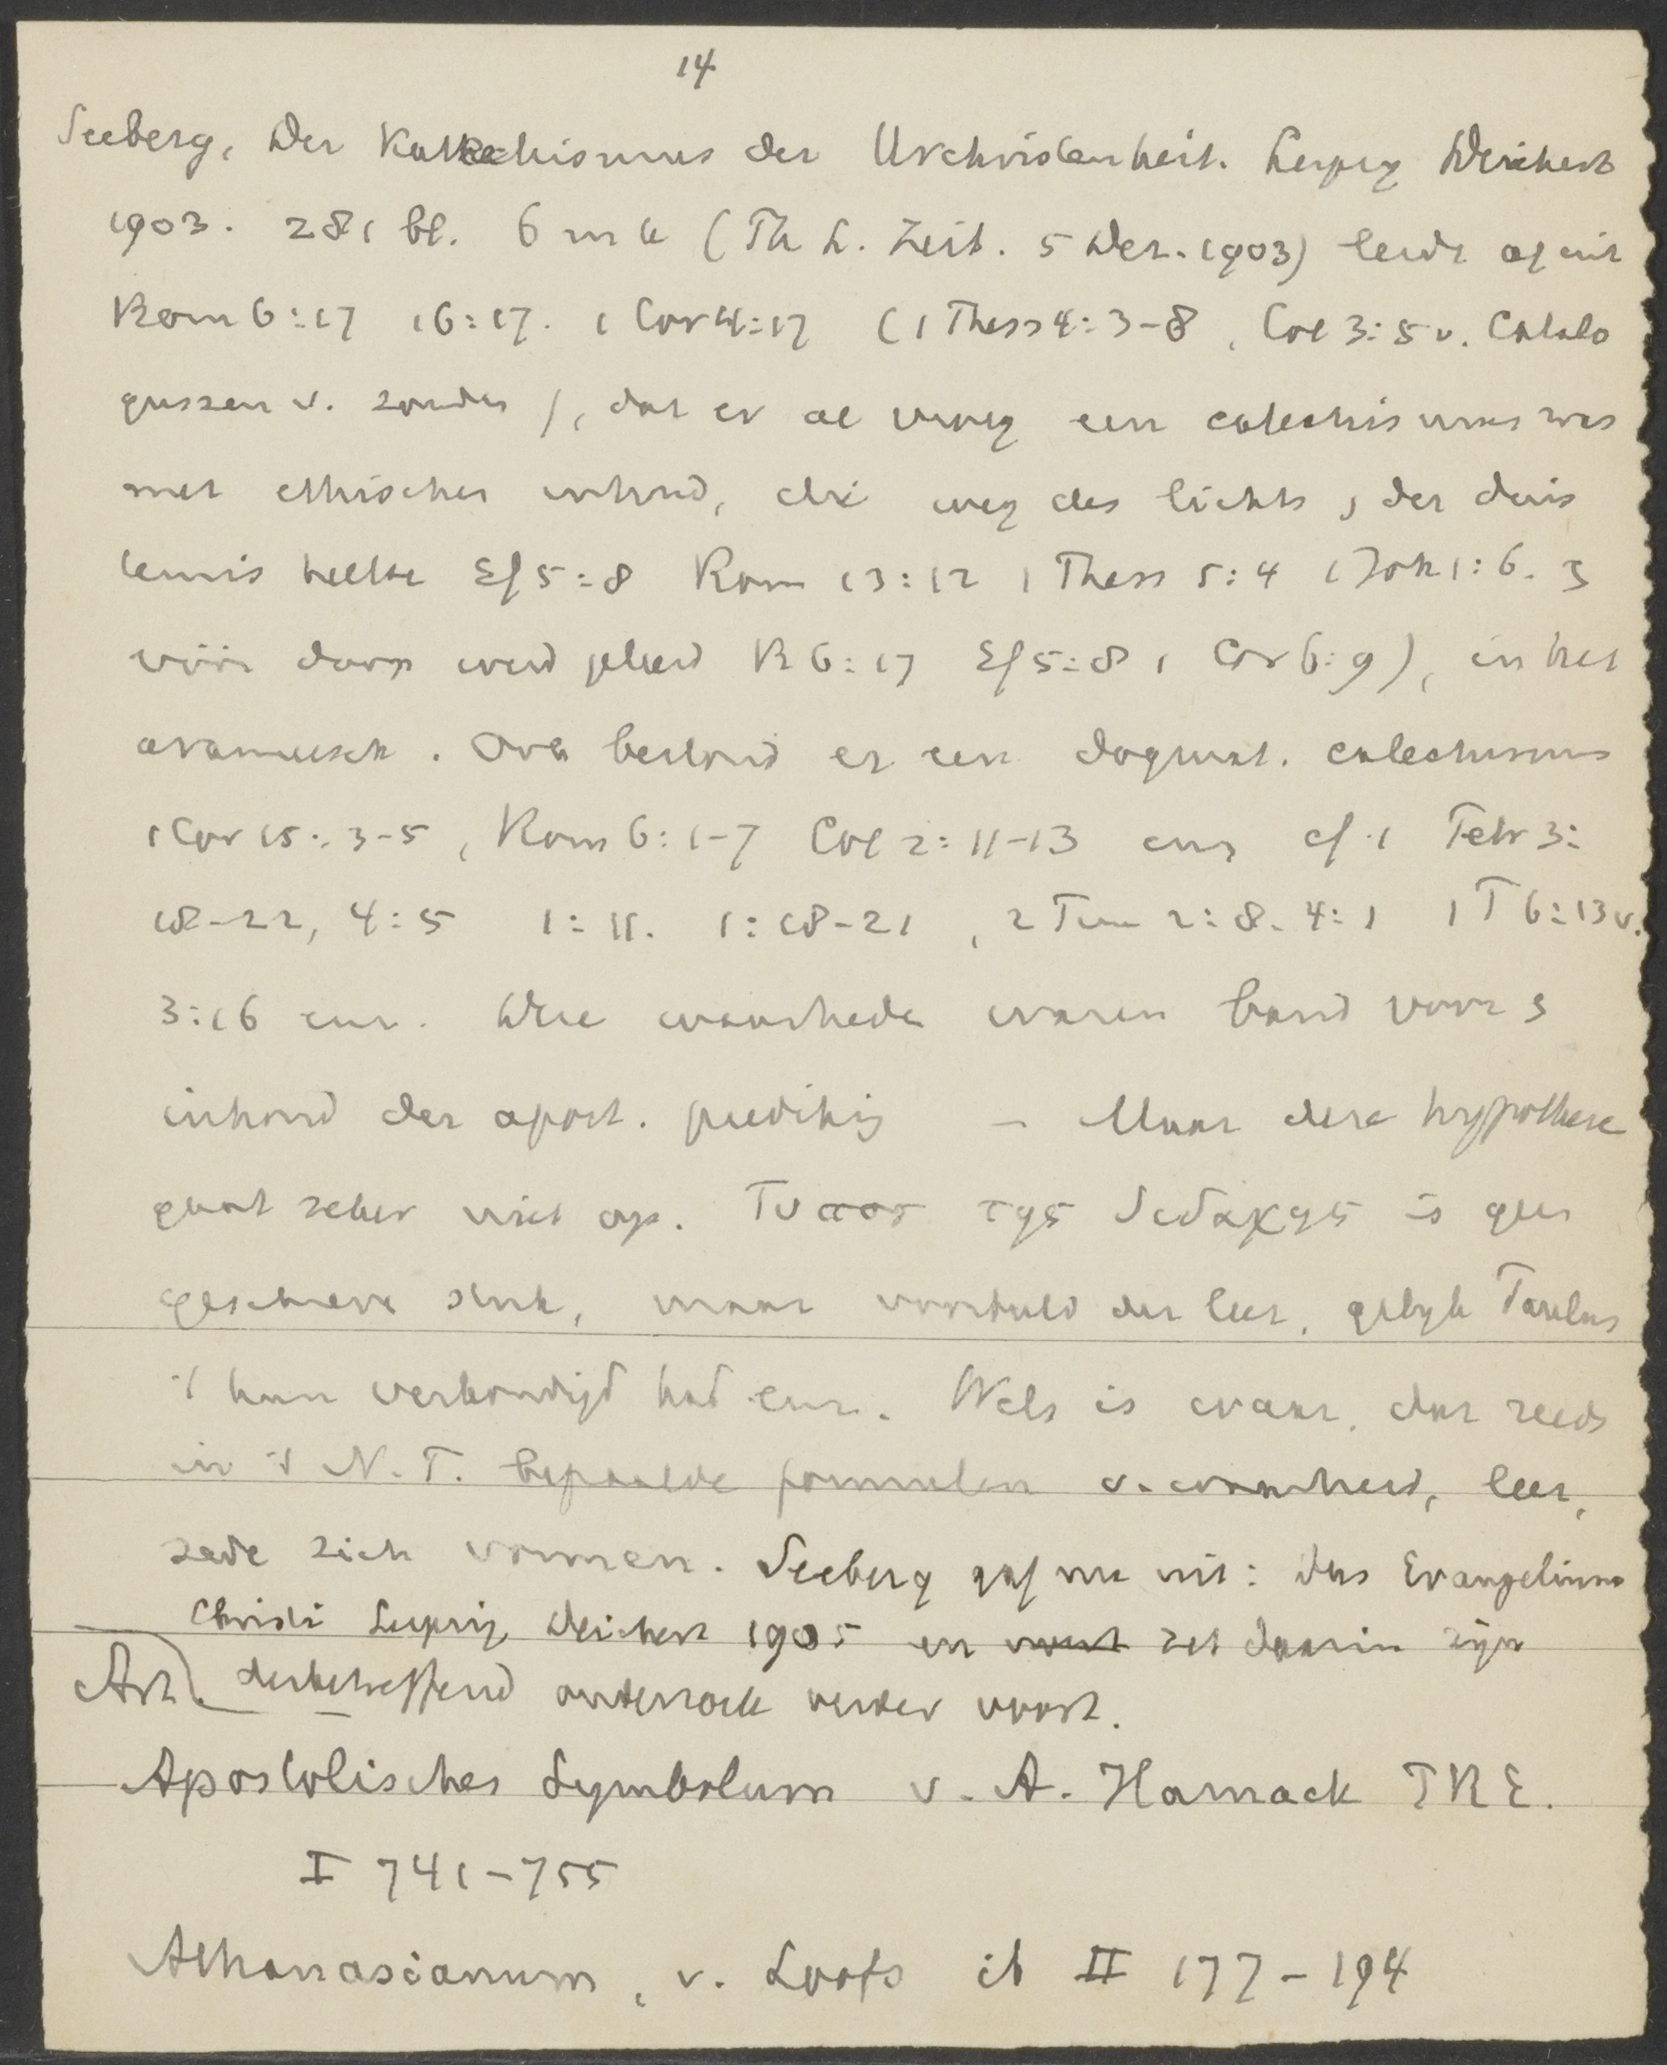 14
Seeberg, Der Katechismus der Urchristenheit. Leipzig Deichert
1903. 281 bl. 6 mk (Th L. Zeit. 5 Dez. 1903) leidt af uit
Rom 6:17 16:17. 1 Cor 4:17 (1 Thess 4:3-8, Col 3:5 v. Catalo
gussen v. zonden), dat er al vroeg een catechismus was
met ethischen inhoud, die weg des lichts, der duis
ternis heette Ef 5:8 Rom 13:12 1 Thess 5:4 1 Joh 1:6. 3
vóór doop werd geleerd R 6:17 Ef 5:8 1 Cor 6:9), in het
arameesch. Ook bestond er een dogmat. catechismus
1 Cor 15:3-5, Rom 6:1-7 Col 2:11-13 enz cf. 1 Petr 3:
18-22, 4:5 1:11. 1:18-21, 2 Tim 2:8. 4:1 1 T 6:13 v.
3:16 enz. Deze waarheden waren
inhoud der apost. prediking – Maar deze hypothese
gaat zeker niet op. Τυπος της διδαχης is geen
geschreven stuk, maar voorbeeld der leer, gelijk Paulus
't hun verkondigd had enz. Wel is waar, dat reeds
in 't N.T. bepaalde formulen v. waarheid, leer,
zede zich vormen. Seeberg gaf nu uit: Das Evangelium
Christi Leipzig Deichert 1905 en zet daarin zijn
Art. desbetreffend onderzoek verder voort.
Apostolisches Symbolum v. A. Harnack PRE.
I 741-755
Athanasianum, v. Loofs ib II 177-194